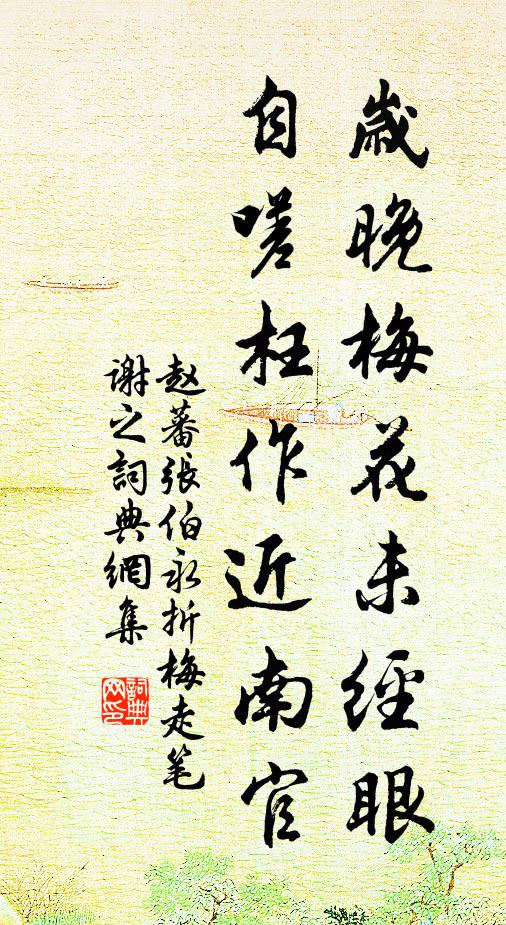 歲晚梅花未經眼
自嗟枉作近南官
赵蕃張伯永折梅走笔
谢之詞典網集
詞典网印